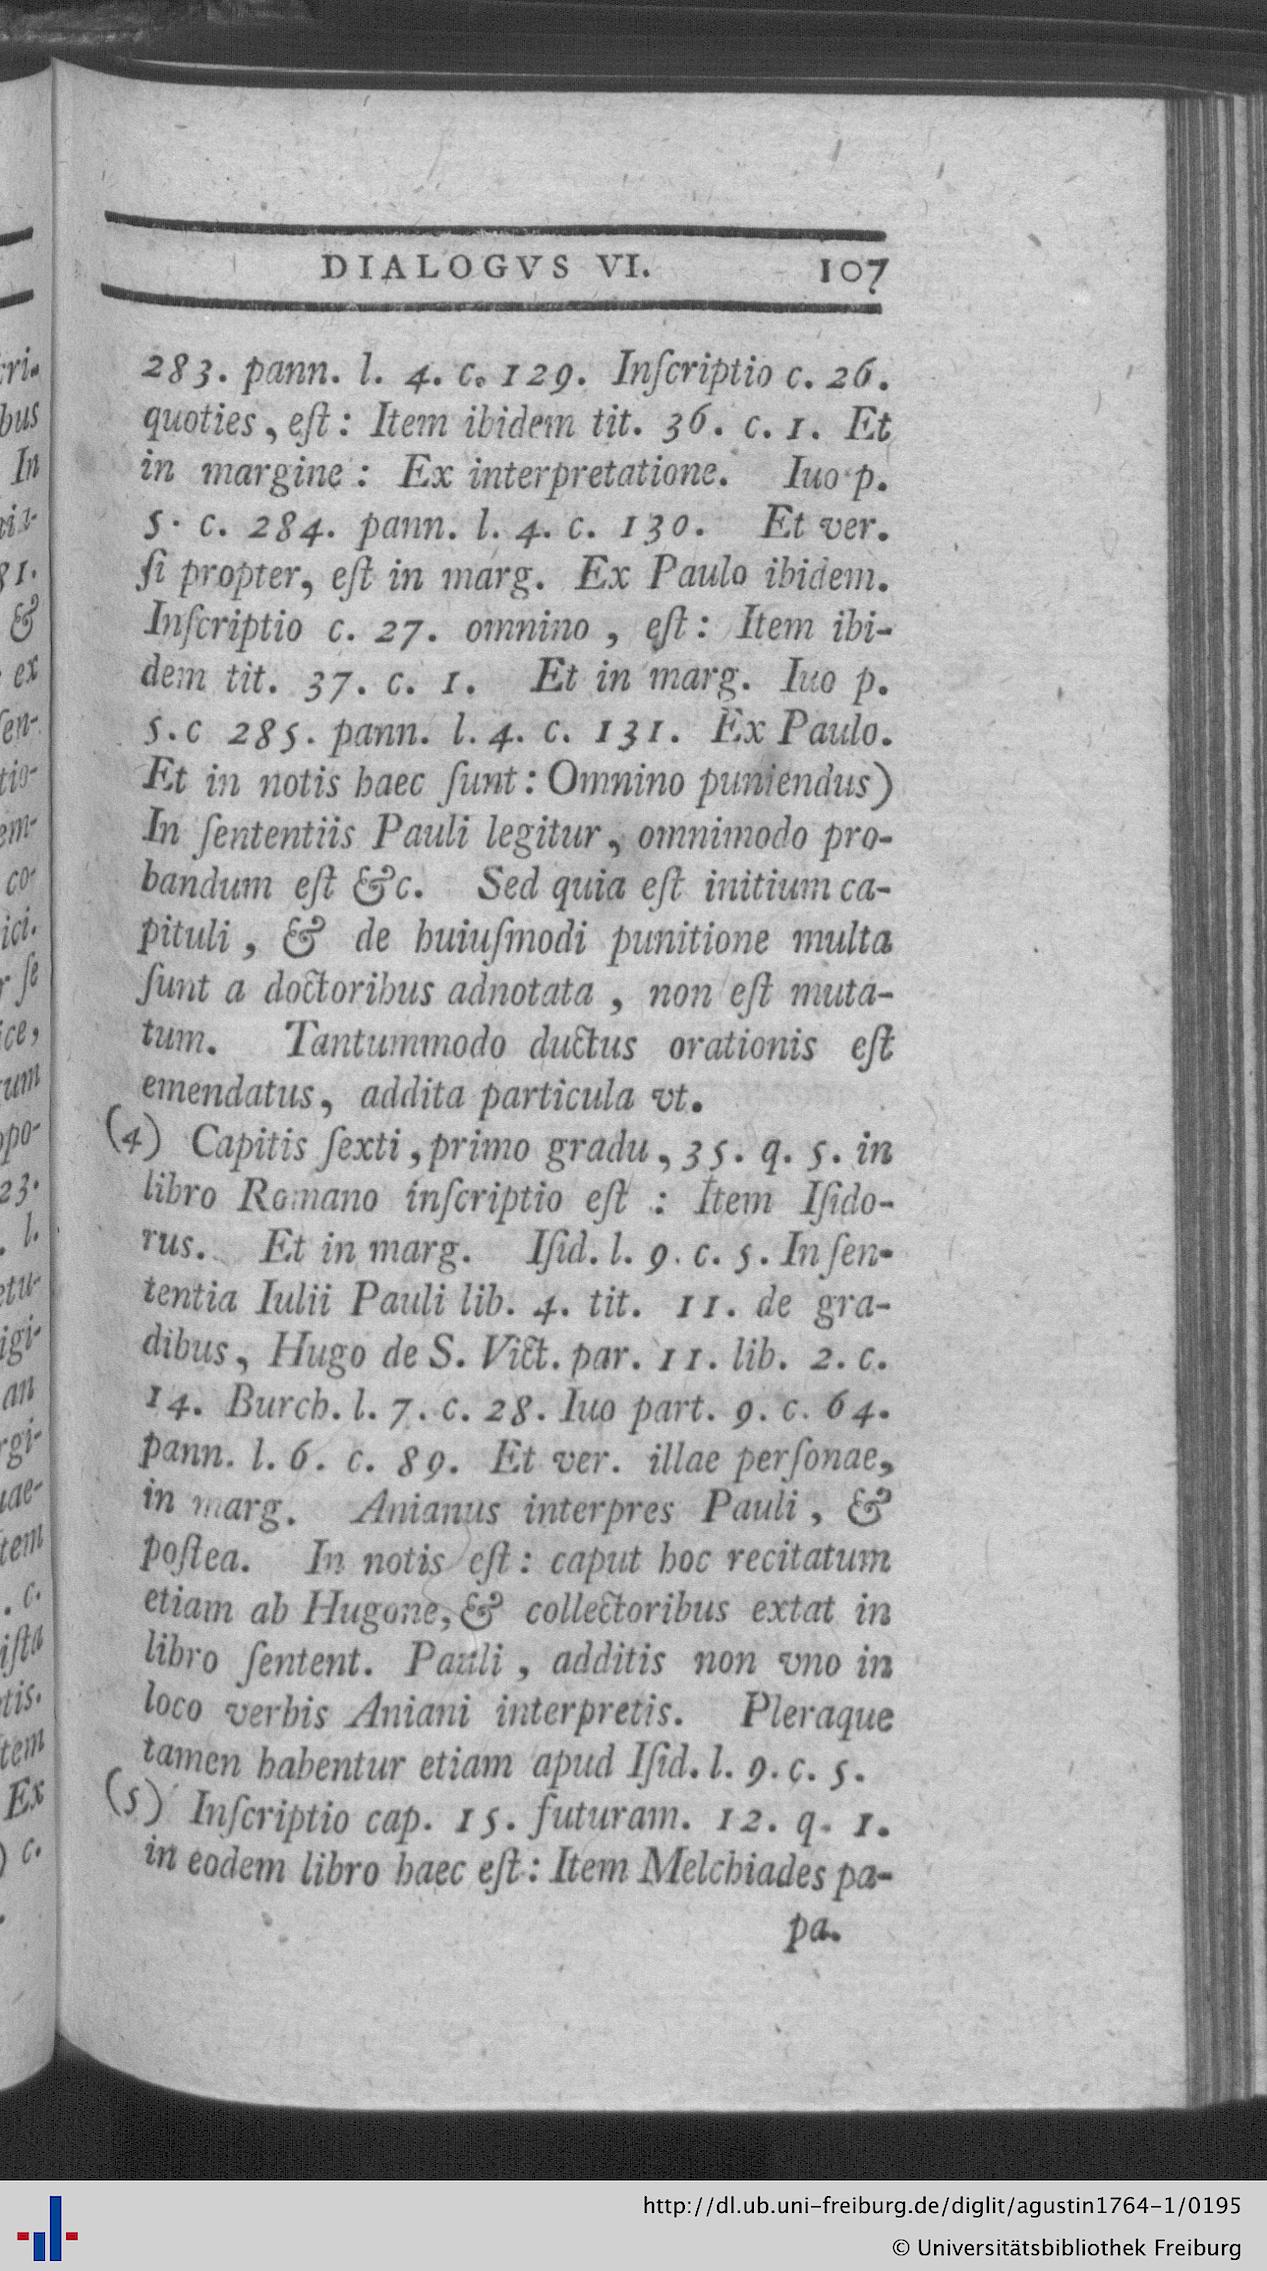 DIALOGVS VI. 107
283. pann. l. 4. c. 129. Inſcriptio c. 26.
quoties, eſt: Item ibidem tit. 36. c. 1. Et
in margine: Ex interpretatione. Iuo p.
5. c. 284. pann. l. 4. c. 130. Et ver.
ſi propter, eſt in marg. Ex Paulo ibidem.
Inſcriptio c. 27. omnino, eſt: Item ibi-
dem tit. 37. c. 1. Et in marg. Iuo p.
5.c 285. pann. l. 4. c. 131. Ex Paulo.
Et in notis haec ſunt: Omnino puniendus)
In ſententiis Pauli legitur, omnimodo pro-
bandum eſt &c. Sed quia eſt initium ca-
pituli, & de huiuſmodi punitione multa
ſunt a doctoribus adnotata, non eſt muta-
tum. Tantummodo ductus orationis eſt
emendatus, addita particula vt.
(4) Capitis ſexti, primo gradu, 35. q. 5. in
libro Romano inſcriptio eſt: Item Iſido-
rus. Et in marg. Iſid. l. 9. c. 5. In ſen-
tentia Iulii Pauli lib. 4. tit. 11. de gra-
dibus, Hugo de S. Vict. par. 11. lib. 2. c.
14. Burch. l. 7. c. 28. Iuo part. 9. c. 64.
pann. l. 6. c. 89. Et ver. illae perſonae,
in marg. Anianus interpres Pauli, &
poſtea. In notis eſt: caput hoc recitatum
etiam ab Hugone, & collectoribus extat in
libro ſentent. Pauli, additis non vno in
loco verbis Aniani interpretis. Pleraque
tamen habentur etiam apud Iſid. l. 9. c. 5.
(5) Inſcriptio cap. 15. futuram. 12. q. 1.
in eodem libro haec eſt: Item Melchiades pa-
pa.
http://dl.ub.uni-freiburg.de/diglit/agustin1764-1/0195
© Universitätsbibliothek Freiburg